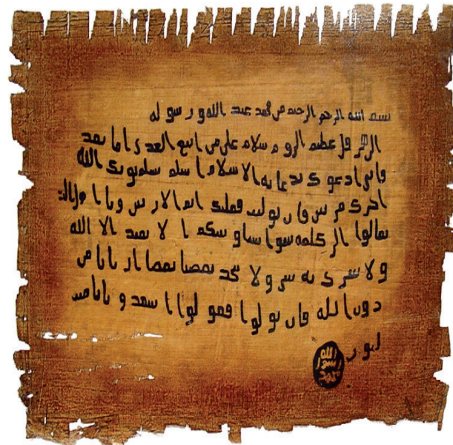 بسم الله الرحمن الرحيم من محمد عبد الله ورسوله
الى هرقل عظيم الروم سلام على من اتبع الهدى اما بعد
فاني ادعوك بدعاية الاسلام اسلم تسلم يوتك الله
اجرك مرتين فان توليت فعليك اثم الاريسيين ويا اهل
تعالوا الى كلمة سوا بيننا وبينكم ا لا نعبد الا الله
ولا نشرك به شي ولا يتخذ بعضنا بعضا اربابا من
دون الله فان تولوا فقولوا اشهدوا بانا مس
لمون
الله
رسول
محمد